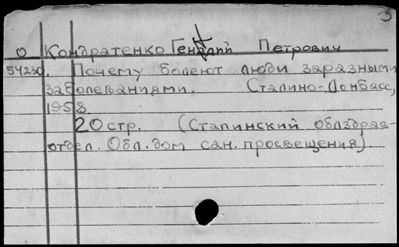 З
О Кондратенко Геннадий Петрович
54230. Почему болеют люди заразными
заболеваниями. Сталино-Донбасс,
1958
20 стр. (Сталинский облздрав-
отдел. Обл. дом сан. просвещения).